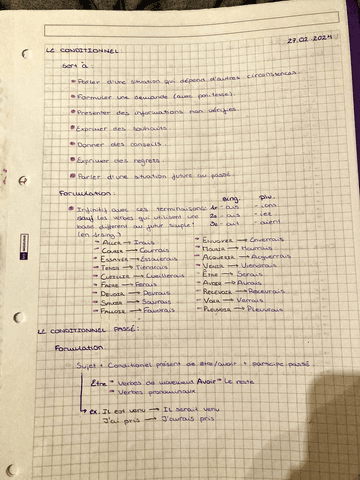 27.02.2024
LE CONDITIONNEL:
Sert à
Parler d'une situation qui dépend d'autres circonstances.
Formuler une demande (avec politesse).
Présenter des informations non vérifiés
Exprimer des souhaits
Donner des conseils
Exprimer des regrets
Parler d'une situation future au passé
Formulation:
sing. plu.
Infinitif avec ces terminaisons: 1e - ais - ions
sauf les verbes qui utilisent une 2e - ais - iez
base différent au futur simple! 3e - ait - aient
- ALLER → Irais - ENVOYER → Enverrais
- COURIR → Courrais - MOURIR → Mourrais
- ESSAYER → Essaierais - ACQUERIR → Acquerrais
- TENIR → Tiendrais - VENIR → Viendrais
- CUEILLIR → Cueillerais - ÊTRE → Serais
- FAIRE → Ferais - AVOIR → Aurais
- DEVOIR → Devrais - RECEVOIR → Recevrais
- SAVOIR → Saurais - VOIR → Verrais
- FALLOIR → Faudrais - PLEUVOIR → Pleuvrais
LE CONDITIONNEL PASSÉ:
Formulation
Sujet + Conditionel présent de être/avoir + participe passé
Être - Verbes de mouvement Avoir - Le reste
- Verbes pronominaux
ex. Il est venu → Il serait venu
J'ai pris → J'aurais pris